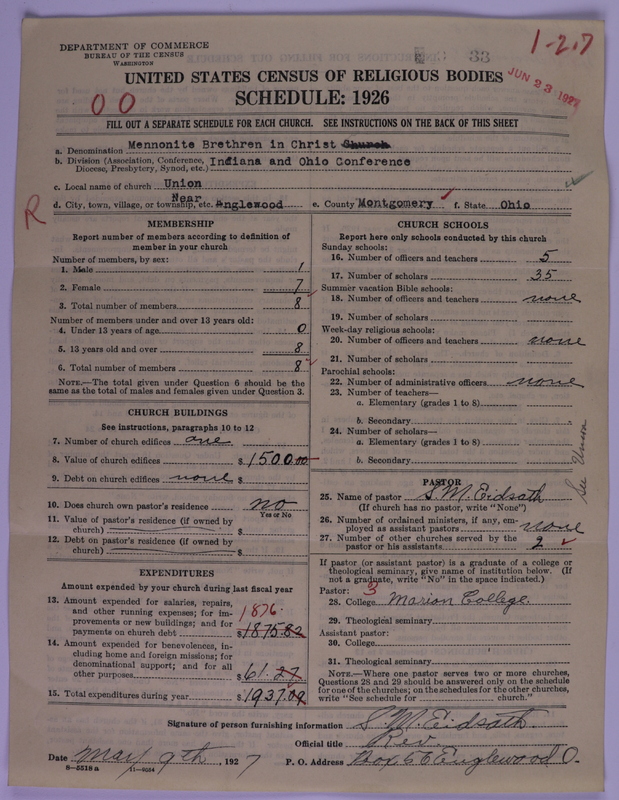 DEPARTMENT OF COMMERCE
BUREAU OF THE CENSUS
WASHINGTON
33
1-2.7
JUN 23 1927
UNITED STATES CENSUS OF RELIGIOUS BODIES
SCHEDULE: 1926
00
FILL OUT A SEPARATE SCHEDULE FOR EACH CHURCH. SEE INSTRUCTIONS ON THE BACK OF THIS SHEET
a. Denomination Mennonite Brethren in Christ Church
b. Division (Association, Conference, Diocese, Presbytery, Synod, etc.) Indiana and Ohio Conference
c. Local name of church Union
d. City, town, village, or township, etc. Near Englewood e. County Montgomery f. State Ohio
R
MEMBERSHIP
Report number of members according to definition of
member in your church
Number of members, by sex:
1. Male 1
2. Female 7
3. Total number of members 8
Number of members under and over 13 years old:
4. Under 13 years of age 0
5. 13 years old and over 8
6. Total number of members 8
NOTE.—The total given under Question 6 should be the
same as the total of males and females given under Question 3.
CHURCH BUILDINGS
See instructions, paragraphs 10 to 12
7. Number of church edifices one
8. Value of church edifices $ 1500.00
9. Debt on church edifices none $
10. Does church own pastor's residence no
Yes or No
11. Value of pastor's residence (if owned by
church) $
12. Debt on pastor's residence (if owned by
church) $
EXPENDITURES
Amount expended by your church during last fiscal year
13. Amount expended for salaries, repairs,
and other running expenses; for im-
provements or new buildings; and for
payments on church debt $ 1875.82
1876.
14. Amount expended for benevolences, in-
cluding home and foreign missions; for
denominational support; and for all
other purposes $ 61.27
15. Total expenditures during year $ 1937.09
CHURCH SCHOOLS
Report here only schools conducted by this church
Sunday schools:
16. Number of officers and teachers 5
17. Number of scholars 35
Summer vacation Bible schools:
18. Number of officers and teachers none
19. Number of scholars
Week-day religious schools:
20. Number of officers and teachers none
21. Number of scholars
Parochial schools:
22. Number of administrative officers none
23. Number of teachers—
a. Elementary (grades 1 to 8)
b. Secondary
24. Number of scholars—
a. Elementary (grades 1 to 8)
b. Secondary
See Union
PASTOR
25. Name of pastor S. M. Eidsath
(If church has no pastor, write "None")
26. Number of ordained ministers, if any, em-
ployed as assistant pastors none
27. Number of other churches served by the
pastor or his assistants 2
If pastor (or assistant pastor) is a graduate of a college or
theological seminary, give name of institution below. (If
not a graduate, write "No" in the space indicated.)
Pastor: 3
28. College Marion College.
29. Theological seminary
Assistant pastor:
30. College
31. Theological seminary
NOTE.—Where one pastor serves two or more churches,
Questions 28 and 29 should be answered only on the schedule
for one of the churches; on the schedules for the other churches,
write "See schedule for church."
Signature of person furnishing information S. M. Eidsath
Official title Rev.
Date May 9th, 1927 P. O. Address Box 56 Englewood O.
8-5518 a 11-9054